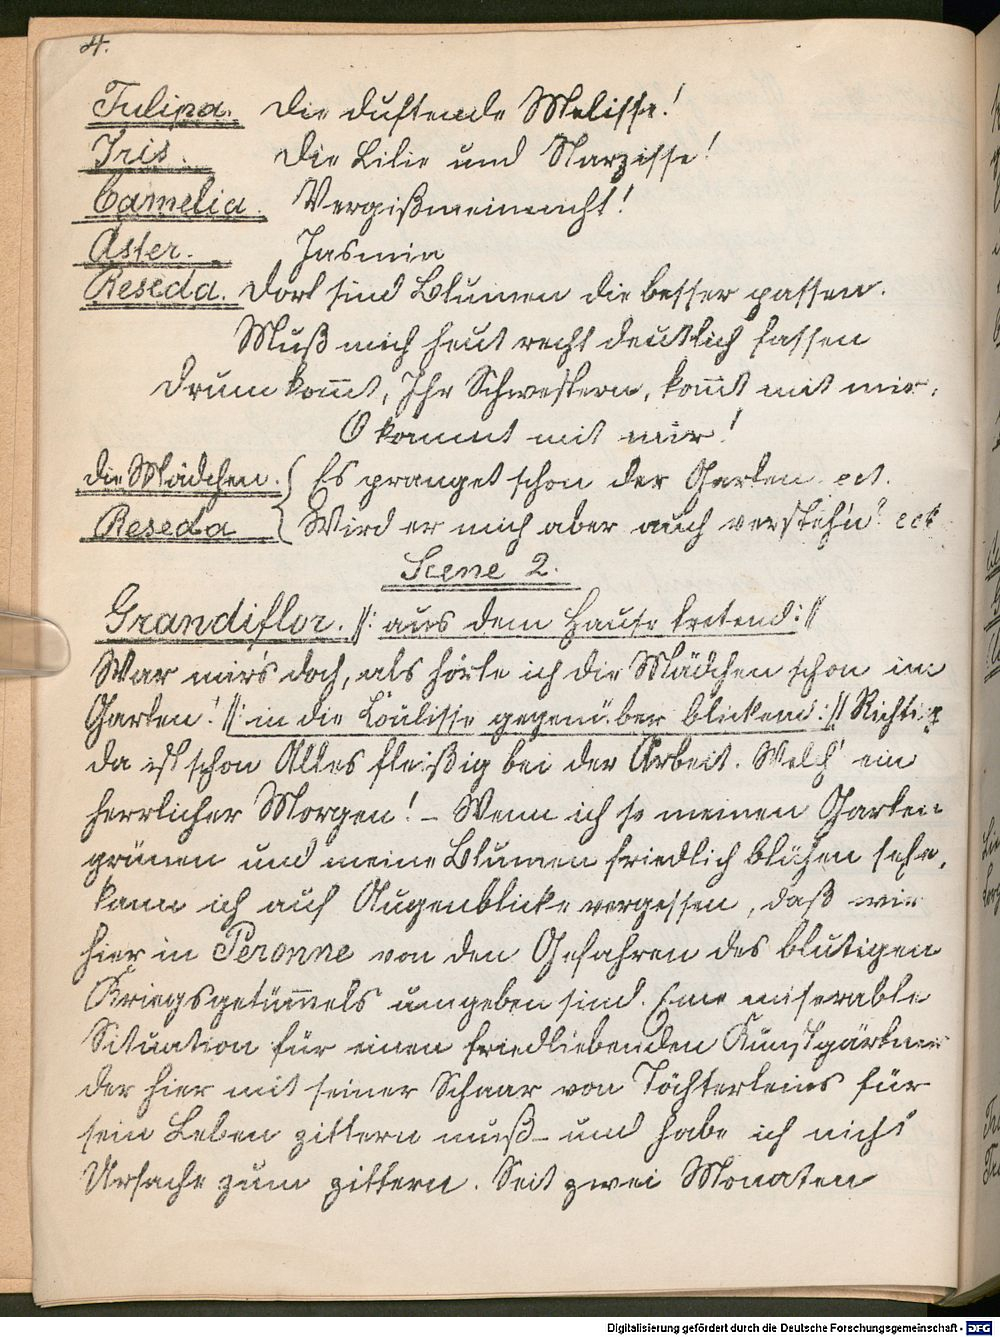 4.
Tulipa. die duftende Melisse!
Iris. die Lilie und Narzisse!
Camelia. Vergißmeinnicht!
Aster. Jasmin
Reseda. dort sind Blumen die besser passen.
Muß mich heut recht deutlich fassen
drum kom̄t, Ihr Schwestern, kom̄t mit mir,
O kommt mit mir!
die Mädchen. { Es pranget schon der Garten ect.
Reseda { Wird er mich aber auch versteh'n? ect
Scene 2.
Grandiflor. //: aus dem Hause tretend: //
War mir's doch, als hörte ich die Mädchen schon im
Garten! //: in die Coulisse gegenüber blickend: // Richtig
da ist schon Alles fleißig bei der Arbeit. Welch' ein
herrlicher Morgen! – Wenn ich so meinen Garten
grünen und meine Blumen friedlich blühen sehe,
kann ich auf Augenblicke vergessen, daß wir
hier in Peronne von den Gefahren des blutigen
Kriegsgetüm̄els umgeben sind. Eine miserable
Situation für einen friedliebenden Kunstgärtner
der hier mit seiner Schaar von Töchterleins für
sein Leben zittern muß – und habe ich nicht
Ursache zum zittern. Seit zwei Monaten
Digitalisierung gefördert durch die Deutsche Forschungsgemeinschaft - DFG